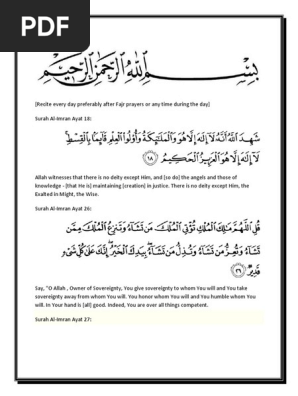 PDF
بِسْمِ اللَّهِ الرَّحْمَنِ الرَّحِيمِ
[Recite every day preferably after Fajr prayers or any time during the day]
Surah Al-Imran Ayat 18:
شَهِدَ اللَّهُ أَنَّهُ لَا إِلَٰهَ إِلَّا هُوَ وَالْمَلَائِكَةُ وَأُولُو الْعِلْمِ قَائِمًا بِالْقِسْطِ
لَا إِلَٰهَ إِلَّا هُوَ الْعَزِيزُ الْحَكِيمُ ١٨
Allah witnesses that there is no deity except Him, and [so do] the angels and those of
knowledge - [that He is] maintaining [creation] in justice. There is no deity except Him, the
Exalted in Might, the Wise.
Surah Al-Imran Ayat 26:
قُلِ اللَّهُمَّ مَالِكَ الْمُلْكِ تُؤْتِي الْمُلْكَ مَن تَشَاءُ وَتَنزِعُ الْمُلْكَ مِمَّن
تَشَاءُ وَتُعِزُّ مَن تَشَاءُ وَتُذِلُّ مَن تَشَاءُ بِيَدِكَ الْخَيْرُ إِنَّكَ عَلَىٰ كُلِّ شَيْءٍ
قَدِيرٌ ٢٦
Say, "O Allah , Owner of Sovereignty, You give sovereignty to whom You will and You take
sovereignty away from whom You will. You honor whom You will and You humble whom You
will. In Your hand is [all] good. Indeed, You are over all things competent.
Surah Al-Imran Ayat 27: